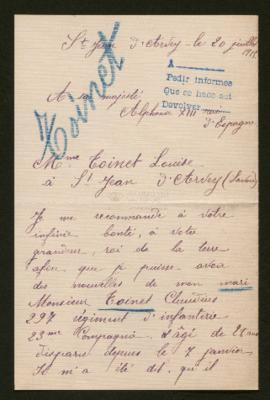 St Jean d'Arvey - le 20 juillet
A
Pedir informes
Que se hace así
Devolver
Toinet
A sa majesté
Alphonse XIII
d'Espagne
Mme Toinet Louise
à St Jean D'Arvey (Savoie)
Je me recommande à votre
infinie bonté, à votre
grandeur, roi de la terre
afin que je puisse avoir
des nouvelles de mon mari
Monsieur Toinet
297 régiment d'infanterie
23me Compagnie âgé de ans
disparu depuis le 7 janvier
Il m'a été dit, qu'il